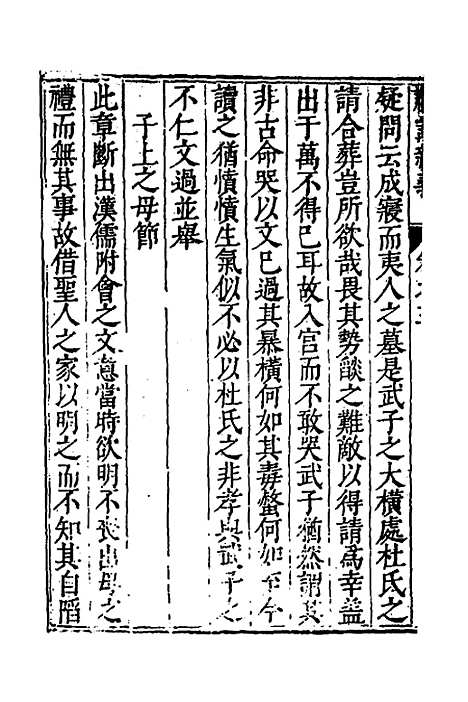 疑問云成寢而夷人之墓是武子之大橫處杜氏之
請合葬豈所欲哉畏其勢燄之難敵以得請爲幸蓋
出于萬不得已耳故入宫而不敢哭武子猶然謂其
非古命哭以文已過其暴橫何如其毒螫何如至今
讀之猶憤憤生氣似不必以杜氏之非孝與武子之
不仁文過並舉
子上之母節
此章斷出漢儒附會之文意當時欲明不喪出母之
禮而無其事故借聖人之家以明之而不知其自蹈